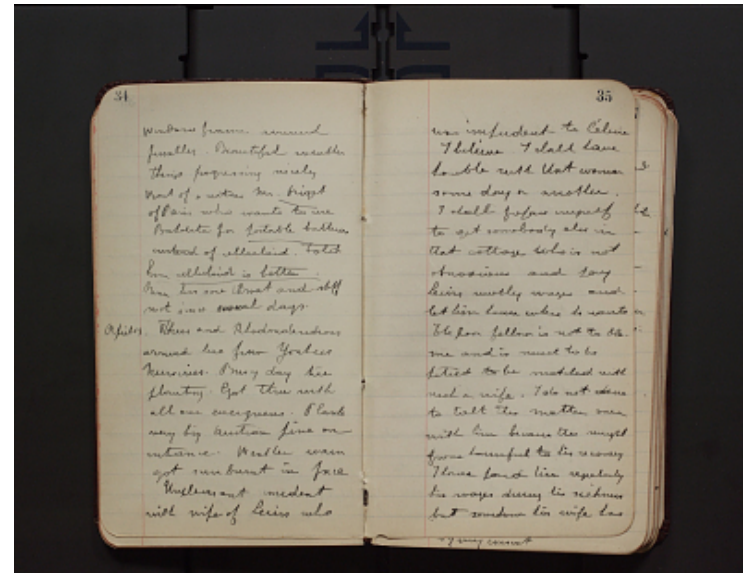 34
windows frame
finally. Beautiful weather
things progressing nicely
of Paris who wants to use
Bakelite for portable batteries
instead of celluloid. Told
him celluloid is better.
has sore throat and stiff
not days.
and Rhododendrons
arrived from Yonkers
Nurseries. Busy day
planting. Got thru with
all our evergreens. Plant
very big Austrian pine on
entrance. Weather warm
got sunburnt in face
Unpleasant incident
with wife of who
35
was impudent to Celine
I believe I shall have
trouble with that woman
some day or another.
I shall prepare myself
to get somebody else in
that cottage who is not
obnoxious and pay
monthly wages and
let him house where he wants
The poor fellow is not to bla-
me and is much to be
pitied to be matched with
such a wife. I do not dare
to talk this matter over
with him because this might
prove harmful to his recovery
I have paid him regularly
his wages during his sickness
but somehow his wife has